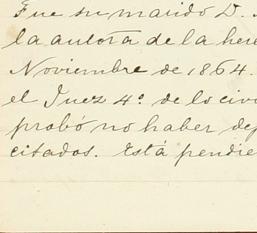 Fue su marido D.
la autora de la here
Noviembre de 1864.
el Juez 4º de lo civi
probó no haber dej
citados. Está pendie